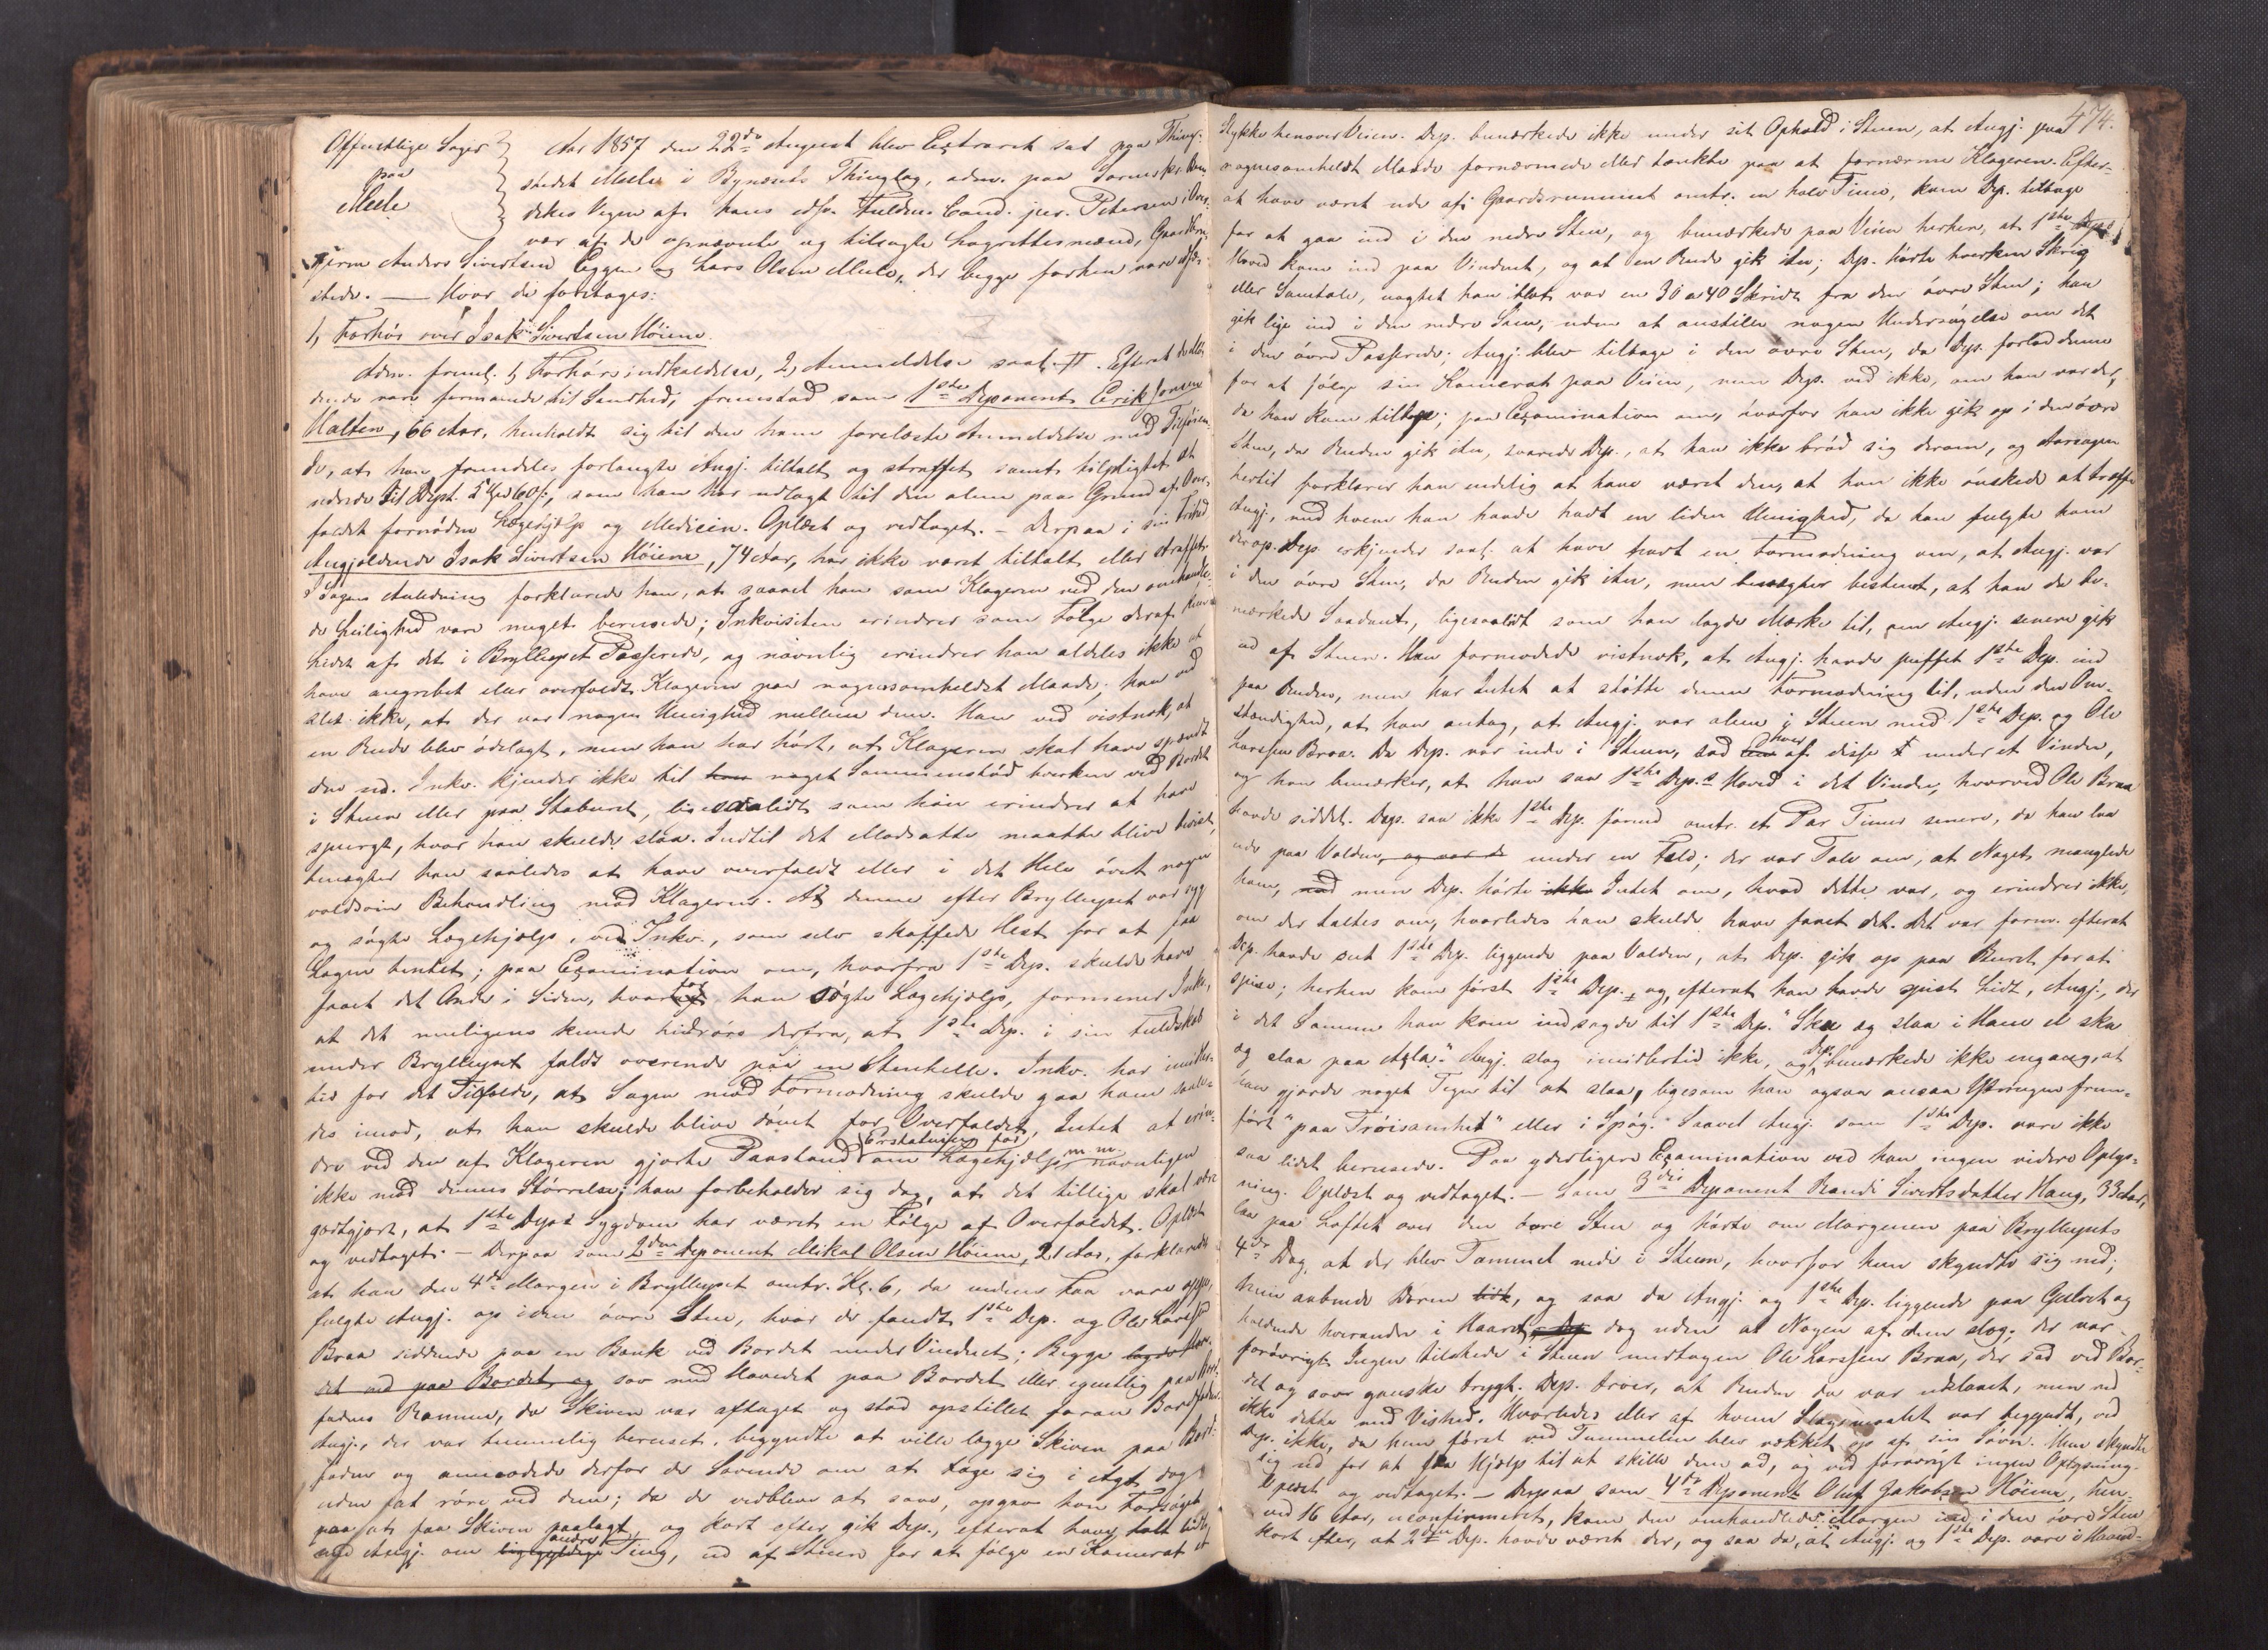 Offentlige Sager
paa
Meele
Aar 1857 den 22de August blev Extraret sat paa Thing-
stedet Meele i Bynæsets Thinglag, adm. paa Sorenskr.
dekes Vegne af hans edsv. Fuldm. Cand. jur. Petersen i Over-
vær af de opnævnte og tilsagte Lagrettesmænd, Gaardbru-
gerne Anders Sivertsen Eggen og Lars Olsen Meele, der begge forhen vare edfæ-
stede. — Hvor da foretages:
1, Forhør over Isak Sivertsen Höiem.
Adm. freml. 1, Forhørsindkaldelse, 2, Anmeldelse saal. II. Efterat de Mö-
dende vare formanede til Sandhed, fremstod som 1ste Deponent Erik Jonsen
Halten, 66 Aar, henholdt sig til den ham forelæste Anmeldelse med Tilføien-
de, at han fremdeles forlangte Angj. tiltalt og straffet samt tilpligtet at
udrede til Dept. 5 Spd 60 s, som han har udlagt til den alene paa Grund af Over-
faldet fornødne Lægehjælp og Medicin. Oplæst og vedtaget. — Derpaa i sin Frihed
Angjældende Isak Sivertsen Höiem, 74 Aar, har ikke været tiltalt eller straffet.
I Sagens Anledning forklarede han, at saavel han som Klageren ved den omhandle-
de Leilighed vare meget berusede; Inkvisiten erindrer som Følge deraf kun
Lidet af det i Bryllupet Passerede, og navnlig erindrer han aldeles ikke at
have angrebet eller overfaldt Klageren paa nogensomhelst Maade; han ved
slet ikke, at der var nogen Uenighed mellem dem. Han ved vistnok, at
en Rude blev ödelagt, men han har hört, at Klageren skal have spændt
den ud. Inkv. kjender ikke til han noget Sammenstöd hverken ved Bordet
i Stuen eller paa Staburet, ligesaalidt som han erindrer at have
spurgt, hvor han skulde slaa. Indtil det Modsatte maatte blive bevist,
benægter han saaledes at have overfaldt eller i det Hele övet nogen
voldsom Behandling mod Klageren. At denne efter Bryllupet var syg
og søgte Lægehjælp, ved Inkv., som selv skaffede Hest for at faa
Lægen hentet; paa Examination om, hvorfra 1ste Dep. skulde have
faaet det Onde i Siden, hvorfor han søgte Lægehjælp, formener Inkv,
at det muligens kunde hidröre derfra, at 1ste Dep. i sin Fuldskab
under Bryllupet faldt overende paa en Stenhelle. Inkv. har imidler-
tid for det Tilfælde, at Sagen mod Formodning skulde gaa ham saale-
des imod, at han skulde blive dömt for Overfaldet, Intet at erin-
dre ved den af Klageren gjorte Paastand om Erstatning for Lægehjælp m. m. navnligen
ikke mod dennes Störrelse; han forbeholder sig dog, at det tillige skal være
godtgjort, at 1ste Deps Sygdom har været en Følge af Overfaldet. Oplæst
og vedtaget. — Derpaa som 2den Deponent Mikal Olsen Höiem, 21 Aar, forklarede
at han den 4de Morgen i Bryllupet omtr. Kl. 6, da endnu Faa vare oppe,
fulgte Angj. op i den övre Stue, hvor de fandt 1ste Dep. og Ole Larsen
Braa siddende paa en Bænk ved Bordet under Vinduet; Begge lagde Hove-
det ned paa Bordet, og sov med Hovedet paa Bordet eller egentlig paa Bord-
fodens Ramme, da Skiven var aftaget og stod opstillet foran Bordfoden.
Angj., der var temmelig beruset, begyndte at ville lægge Skiven paa Bord-
foden og anmodede derfor de Sovende om at tage sig i Agt, dog
uden at röre ved dem; da de vedbleve at sove, opgav han Forsøget
paa at faa Skiven paalagt, og kort efter gik Dep., efterat have talt lidt
med Angj. om ligegyldige andre Ting, ud af Stuen for at følge en Kamerat et
474.
Stykke henover Veien. Dep. bemærkede ikke under sit Ophold i Stuen, at Angj. paa
nogensomhelst Maade fornærmede eller tænkte paa at fornærme Klageren. Efter-
at have været ude af Gaardsrummet omtr. en halv Time, kom Dep. tilbage
for at gaa ind i den nedre Stue, og bemærkede paa Veien herhen, at 1ste Deps
Hoved kom ind paa Vinduet, og at en Rude gik itu; Dep. hörte hverken Skrig
eller Samtale, uagtet han blot var en 30 a 40 Skridt fra den övre Stue; han
gik lige ind i den nedre Stue, uden at anstille nogen Undersögelse om det
i den övre Passerede; Angj. blev tilbage i den övre Stue, da Dep. forlod denne
for at følge sin Kamerat paa Veien, men Dep. ved ikke, om han var der,
da han kom tilbage; paa Examination om, hvorfor han ikke gik op i den övre
Stue, da Ruden gik itu, svarede Dep., at han ikke bröd sig derom, og Aarsagen
hertil forklarer han endelig at have været den, at han ikke önskede at træffe
Angj., med hvem han havde havt en liden Uenighed, da han fulgte ham
derop. Dep. erkjender saal. at have havt en Formodning om, at Angj. var
i den övre Stue, da Ruden gik itu, men benægter bestemt, at han da be-
mærkede Saadant, ligesaalidt som han lagde Mærke til, om Angj. senere gik
ud af Stuen. Han formodede vistnok, at Angj. havde puffet 1ste Dep. ind
paa Ruden, men har Intet at stötte denne Formodning til, uden den Om-
stændighed, at han antog, at Angj. var alene i Stuen med 1ste Dep. og Ole
Larssen Braa. Da Dep. var inde i Stuen, sad hver af disse under et Vindu,
og han bemærker, at han saa 1ste Dep.s Hoved i det Vindu, hvorved Ole Braa
havde siddet. Dep. saa ikke 1ste Dep. førend omtr. et Par Timer senere, da han laa
ude paa Volden, og var d under en Fæld; der var Tale om, at Noget manglede
ham, men Dep. hörte ikke Intet om, hvad dette var, og erindrer ikke,
om der taltes om, hvorledes han skulde have faaet det. Det var formv. efterat
Dep. havde seet 1ste Dep. liggende paa Volden, at Dep. gik op paa Buret for at
spise; herhen kom först 1ste Dep., og, efterat han havde spist Lidt, Angj., der
i det Samme han kom ind sagde til 1ste Dep. "Ska eg slaa i Ham el ska
eg slaa paa Agla." Angj. slog imidlertid ikke, og Dep. bemærkede ikke engang, at
han gjorde noget Tegn til at slaa, ligesom han ogsaa ansaa Yttringen frem-
fört "paa Tröisamhet" eller i Spög." Saavel Angj. som 1ste Dep. vare ikke
saa lidet berusede. Paa yderligere Examination ved han ingen videre Oplys-
ning. Oplæst og vedtaget. — Som 3die Deponent Randi Sivertsdatter Haug, 33 Aar,
laa paa Loftet over den övre Stue og hörte om Morgenen paa Bryllupets
4de Dag, at der blev Tummel nede i Stuen, hvorfor hun skyndte sig ned;
hun aabnede Dören, og saa da Angj. og 1ste Dep. liggende paa Gulvet og
holdende hverandre i Haaret, dog uden at Nogen af dem slog; der var
forövrigt Ingen tilstede i Stuen undtagen Ole Larssen Braa, der sad ved Bor-
det og sov ganske trygt. Dep. troer, at Ruden da var udslaaet, men ved
ikke dette med Vished. Hvorledes eller af hvem Slagsmaalet var begyndt, ved
Dep. ikke, da hun först ved Tummelen blev vækket op af sin Sövn. Hun skyndte
sig ud for at faa Hjælp til at skille dem ad, og ved forövrigt ingen Oplysning.
Oplæst og vedtaget. — Derpaa som 4de Deponent Oluf Jakobsen Höiem, hen-
ved 16 Aar, uconfirmeret, kom den omhandlede Morgen ind i den övre Stue
kort efter, at 2den Dep. havde været der, og saa da, at Angj. og 1ste Dep. vare i Haand-